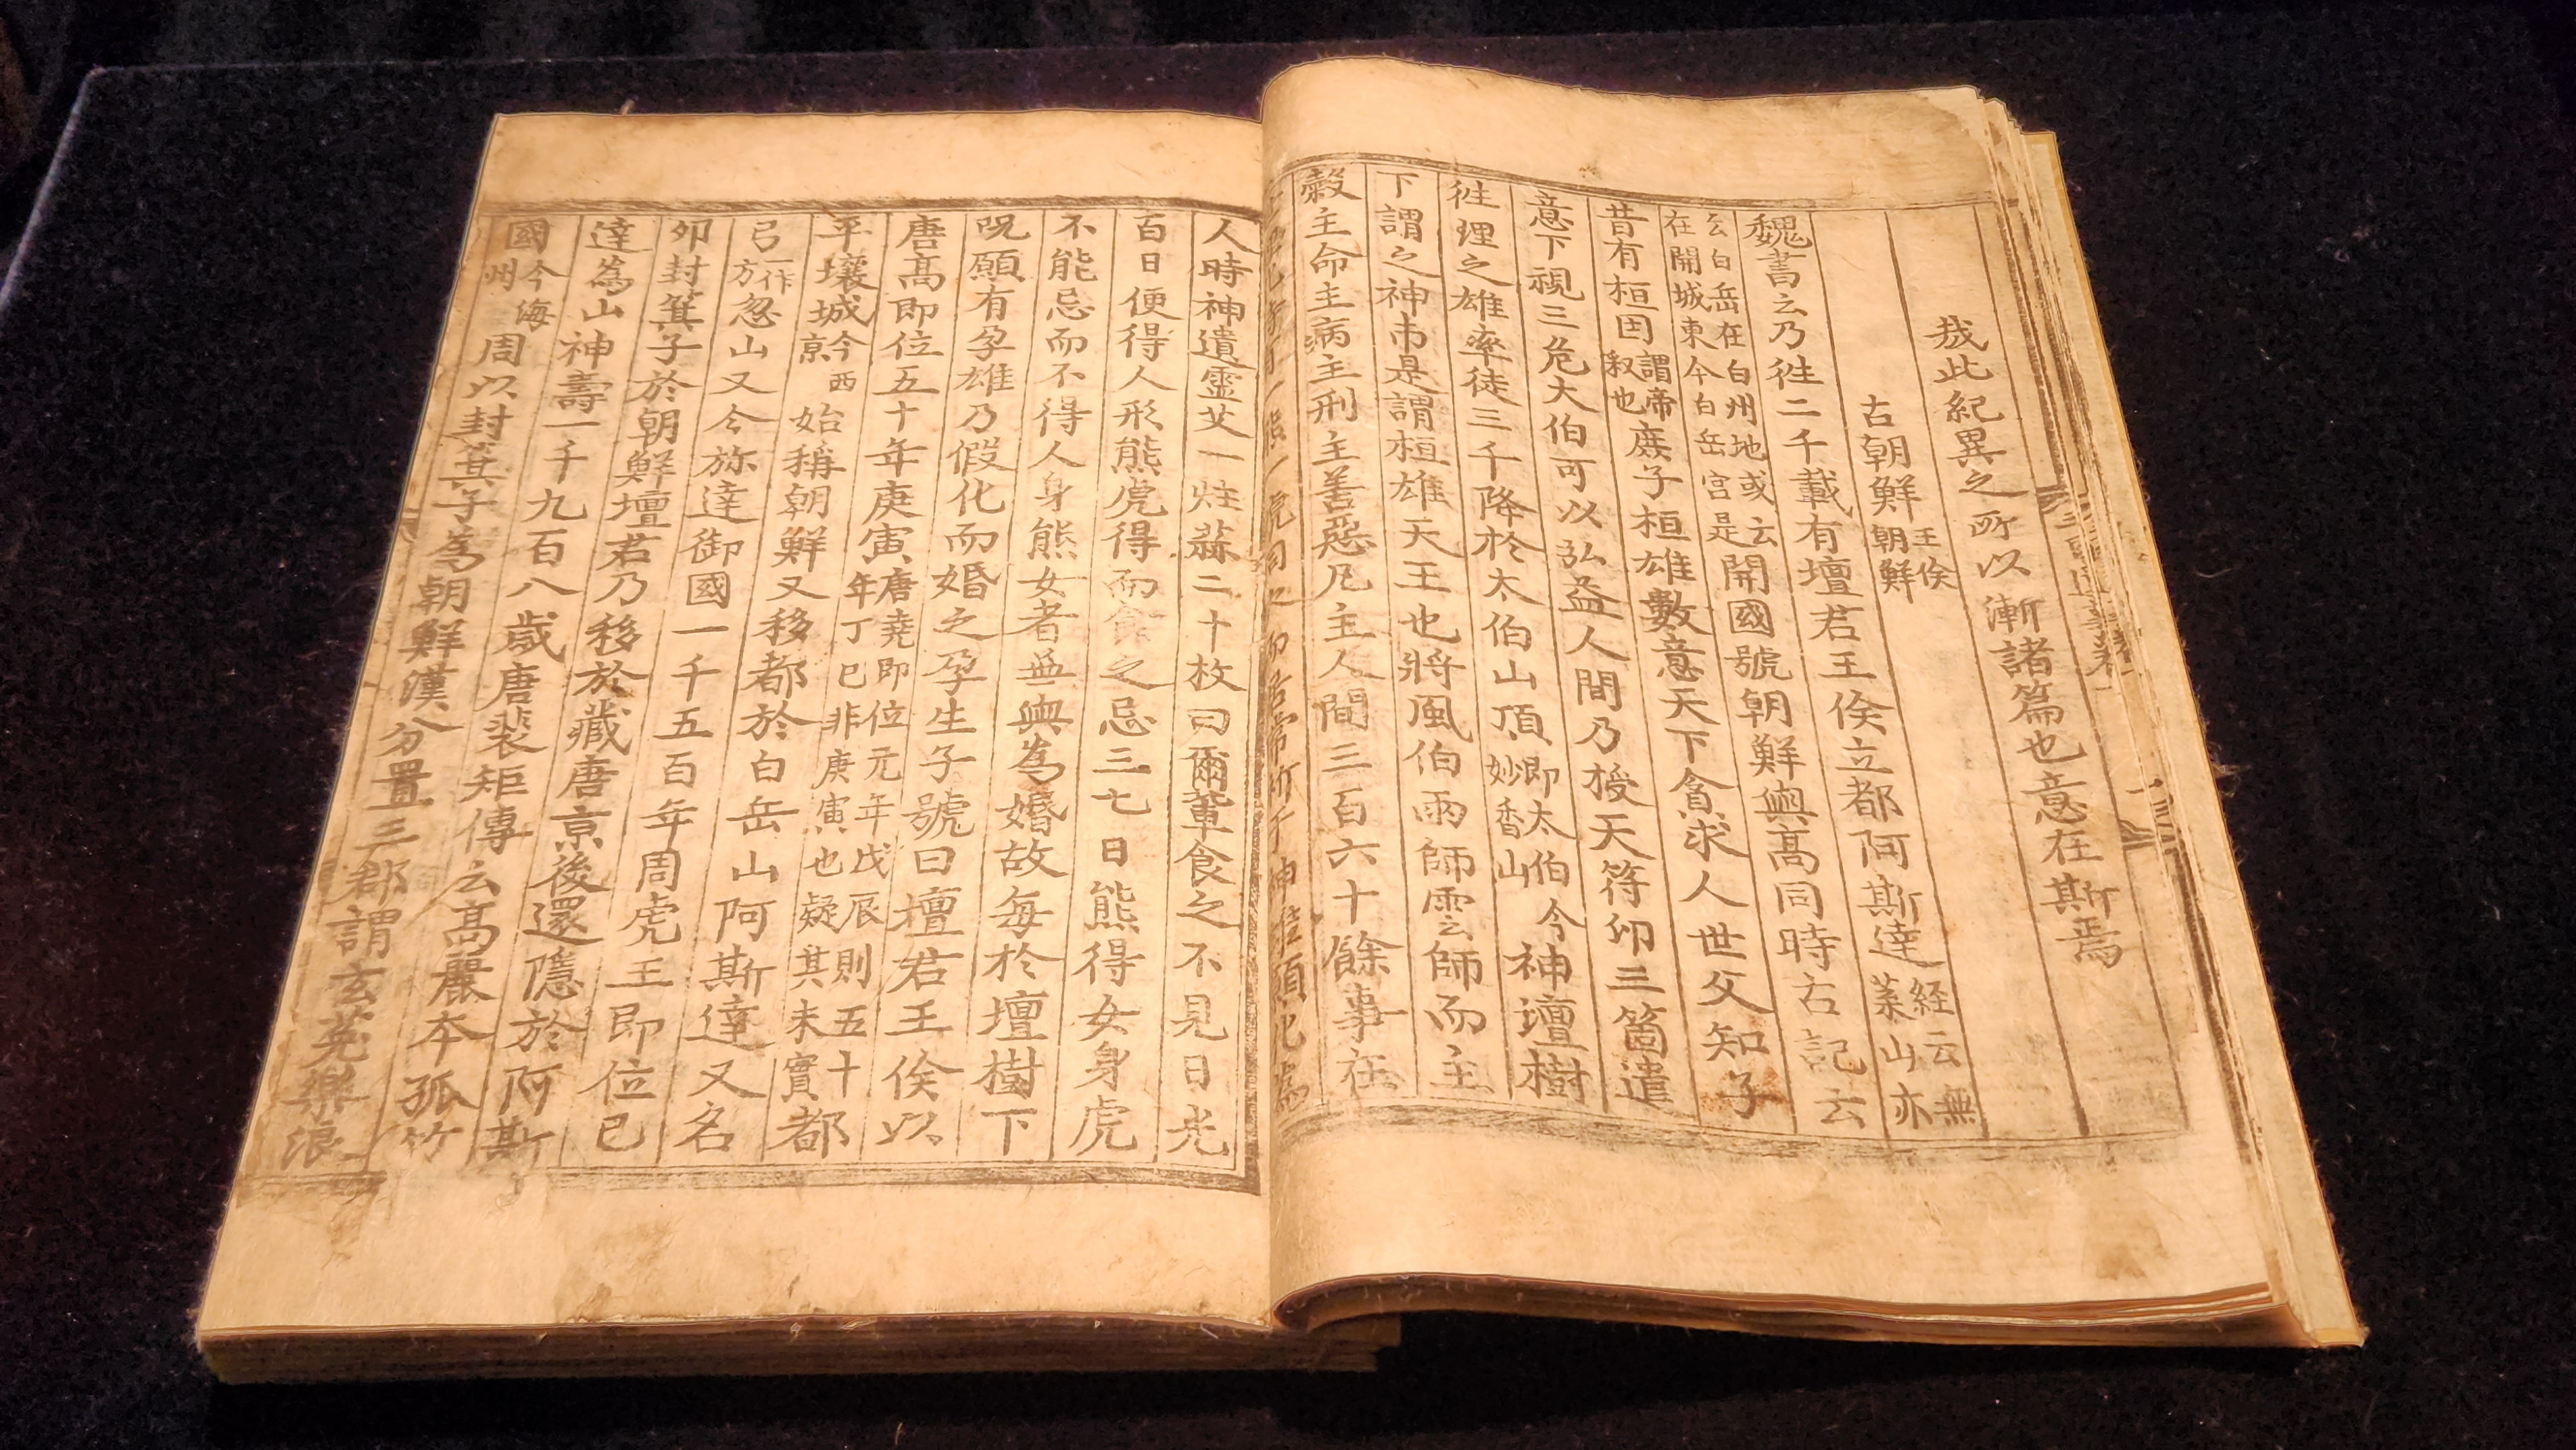 哉此紀異之所以漸諸篇也意在斯焉
古朝鮮 王倹朝鮮
魏書云乃徃二千載有壇君王倹立都阿斯逹 経云無葉山亦
云白岳在白州地或云在開城東今白岳宮是 開國號朝鮮與高同時古記云
昔有桓囯 謂帝釈也 庻子桓雄數意天下貪求人世父知子
意下視三危太伯可以弘益人間乃授天符印三箇遣
徃理之雄率徒三千降於太伯山頂 即太伯今妙香山 神壇樹
下謂之神市是謂桓雄天王也將風伯雨師雲師而主
糓主命主病主刑主善惡凡主人間三百六十餘事在
人時神遺霊艾一炷蒜二十枚曰爾軰食之不見日光
百日便得人形熊虎得而食之忌三七日熊得女身虎
不能忌而不得人身熊女者無與為婚故每於壇樹下
呪願有孕雄乃假化而婚之孕生子號曰壇君王倹以
唐髙即位五十年庚寅 唐堯即位元年戊辰則五十年丁巳非庚寅也疑其未實 都
平壤城 今西京 始稱朝鮮又移都於白岳山阿斯逹又名
弓 一作方 忽山又今旀逹御國一千五百年周虎王即位己
夘封箕子於朝鮮壇君乃移於藏唐京後還隱於阿斯
逹為山神壽一千九百八歲唐裴矩傳云髙麗本孤竹
國 今海州 周以封箕子為朝鮮漢分置三郡謂玄菟樂浪